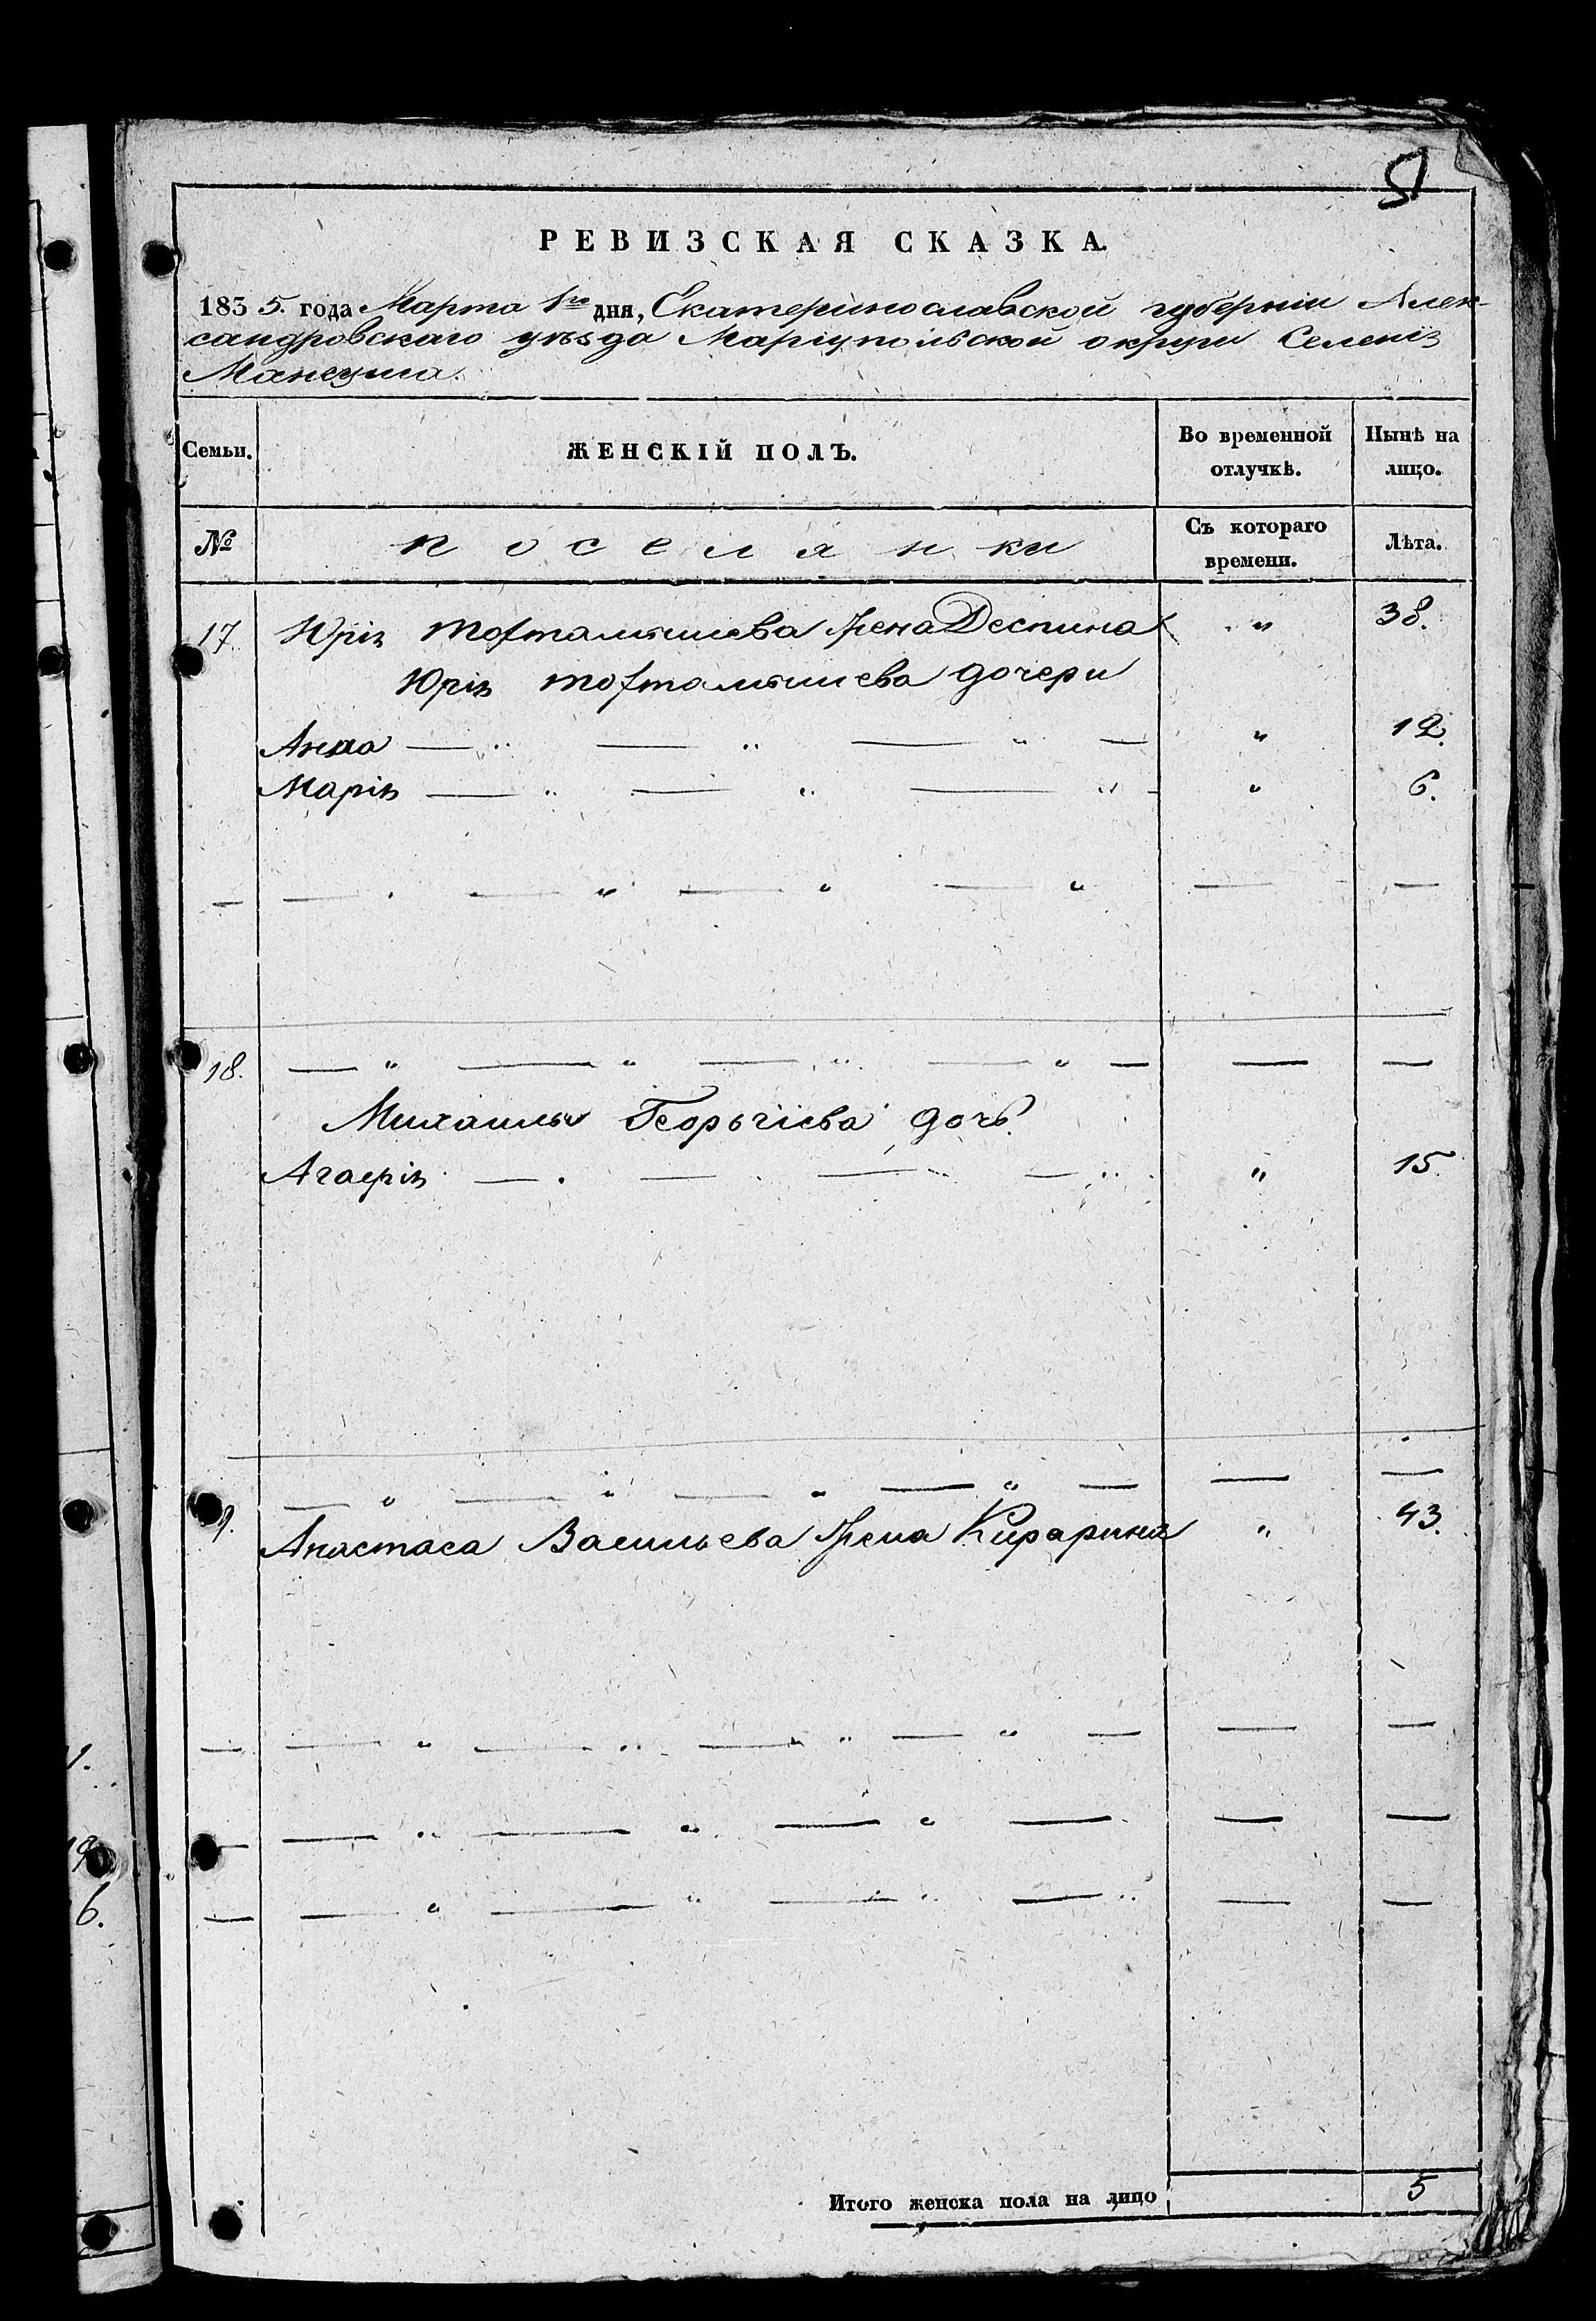 51
РЕВИЗСКАЯ СКАЗКА.
1835. года Марта 1го дня, Екатеринославской губерніи Алек-
сандровскаго уѣзда Маріупольской округи Селенія
Мангуша.
Семьи. ЖЕНСКІЙ ПОЛЪ. Во временной отлучкѣ. Нынѣ на лицо.
№ поселянки Съ котораго времени. Лѣта.
17 Юрія Тохтамышева жена Деспина " 38.
Юрія Тохтамышева дочери
Анна — " — " — " — " 12.
Марія — " — " — " — " 6.
18. — " — " — " — " — — —
Михаила Георьгіева дочь.
Агафія — " 15.
9. — " — " — " — " — — —
Анастаса Васильева жена Кирарина " 43.
Итого женска пола на лицо 5
1.
6.